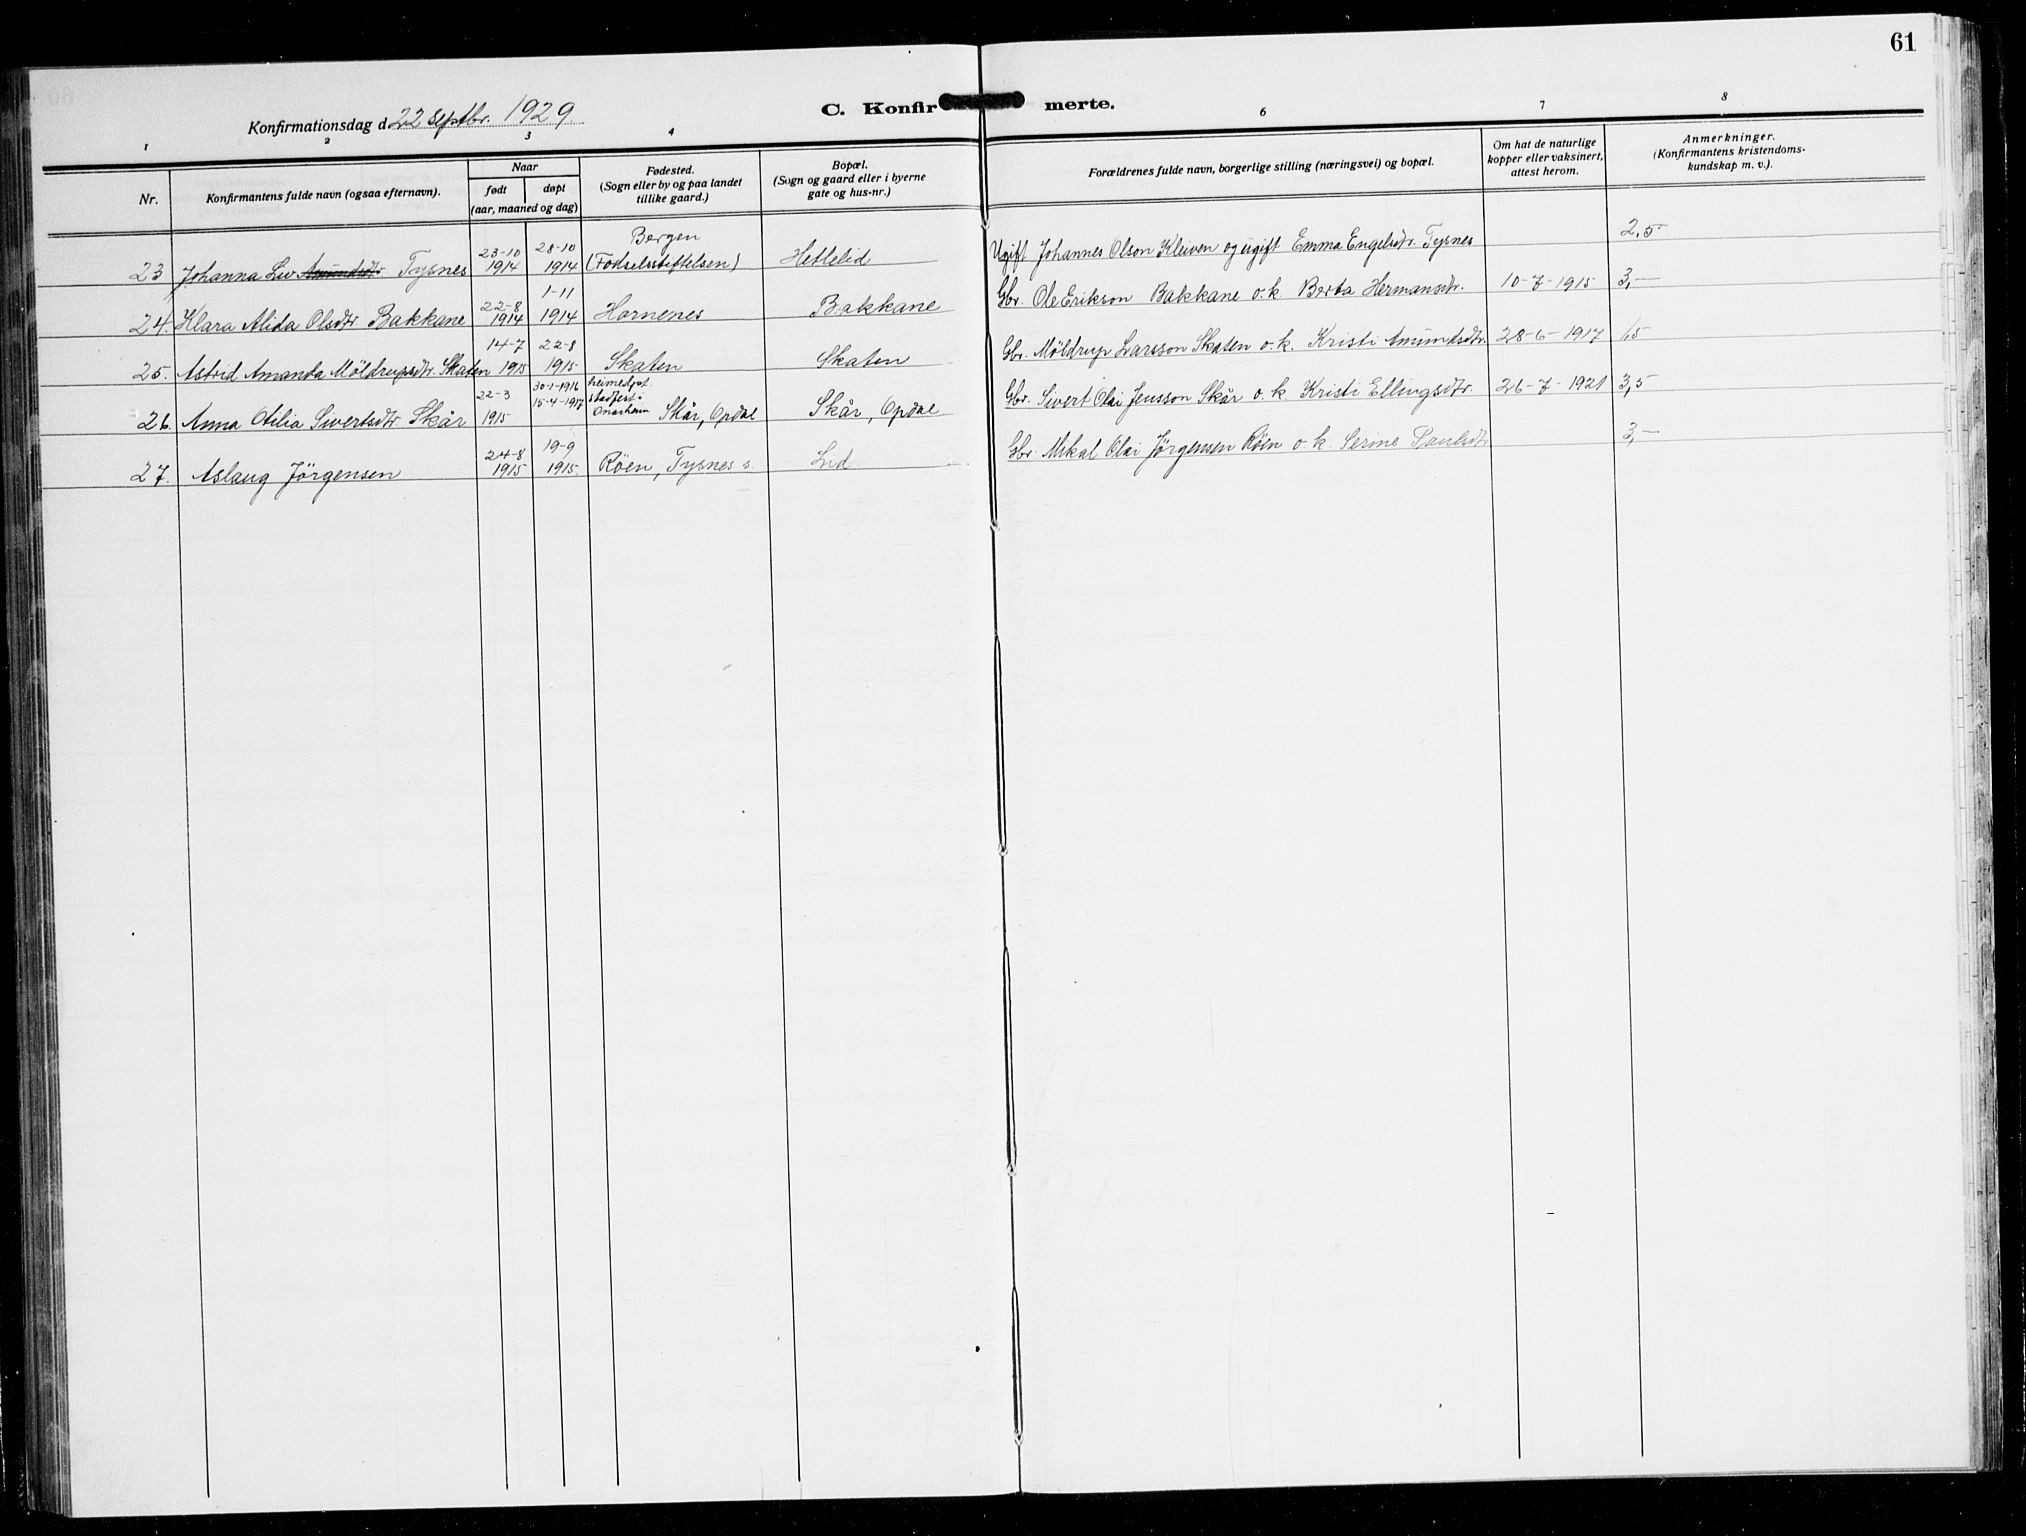 61
Konfirmationsdag d. 22 septbr. 1929
C. Konfirmerte.
1 2 3 4 6 7 8
Nr.
Konfirmantens fulde navn (ogsaa efternavn).
Naar
født døpt
(aar, maaned og dag)
Fødested.
(Sogn eller by og paa landet
tillike gaard.)
Bopæl.
(Sogn og gaard eller i byerne
gate og hus-nr.)
Forældrenes fulde navn, borgerlige stilling (næringsvei) og bopæl.
Om hat de naturlige
kopper eller vaksinert,
attest herom.
Anmerkninger.
(Konfirmantens kristendoms-
kundskap m. v.).
23 Johanna Liv Amundsdtr Tysnes 23-10 1914 28-10 1914 Bergen (Fødselsstiftelsen) Hetlelid Ugift Johannes Olson Kleiven og ugift Emma Engelsdtr. Tysnes 2,5
24. Klara Alida Olsdtr. Bakkane 22-8 1914 1-11 1914 Hornenes Bakkane Gbr. Ole Erikson Bakkane o. k. Berta Hermansdtr. 10-7-1915 3,—
25. Astrid Amanda Möldrupsdtr. Skaten 14-7 1915 22-8 1915 Skaten Skaten Gbr. Möldrup Larsson Skaten o. k. Kristi Amundsdtr. 28-6-1917 1,5
26. Anna Otilia Sivertsdtr. Skår 22-3 1915 30-1-1916 15-4-1917 heimedøpt. stadfest i Onarheim Skår, Opdal Skår, Opdal Gbr. Sivert Olai Jensson Skår o. k. Kristi Ellingsdtr. 26-7-1921 3,5
27. Aslaug Jörgensen 24-8 1915 19-9 1915 Röen, Tysnes s. Lid Gbr. Mikal Olai Jörgensen Röen o. k. Serine Paulsdtr 3,—